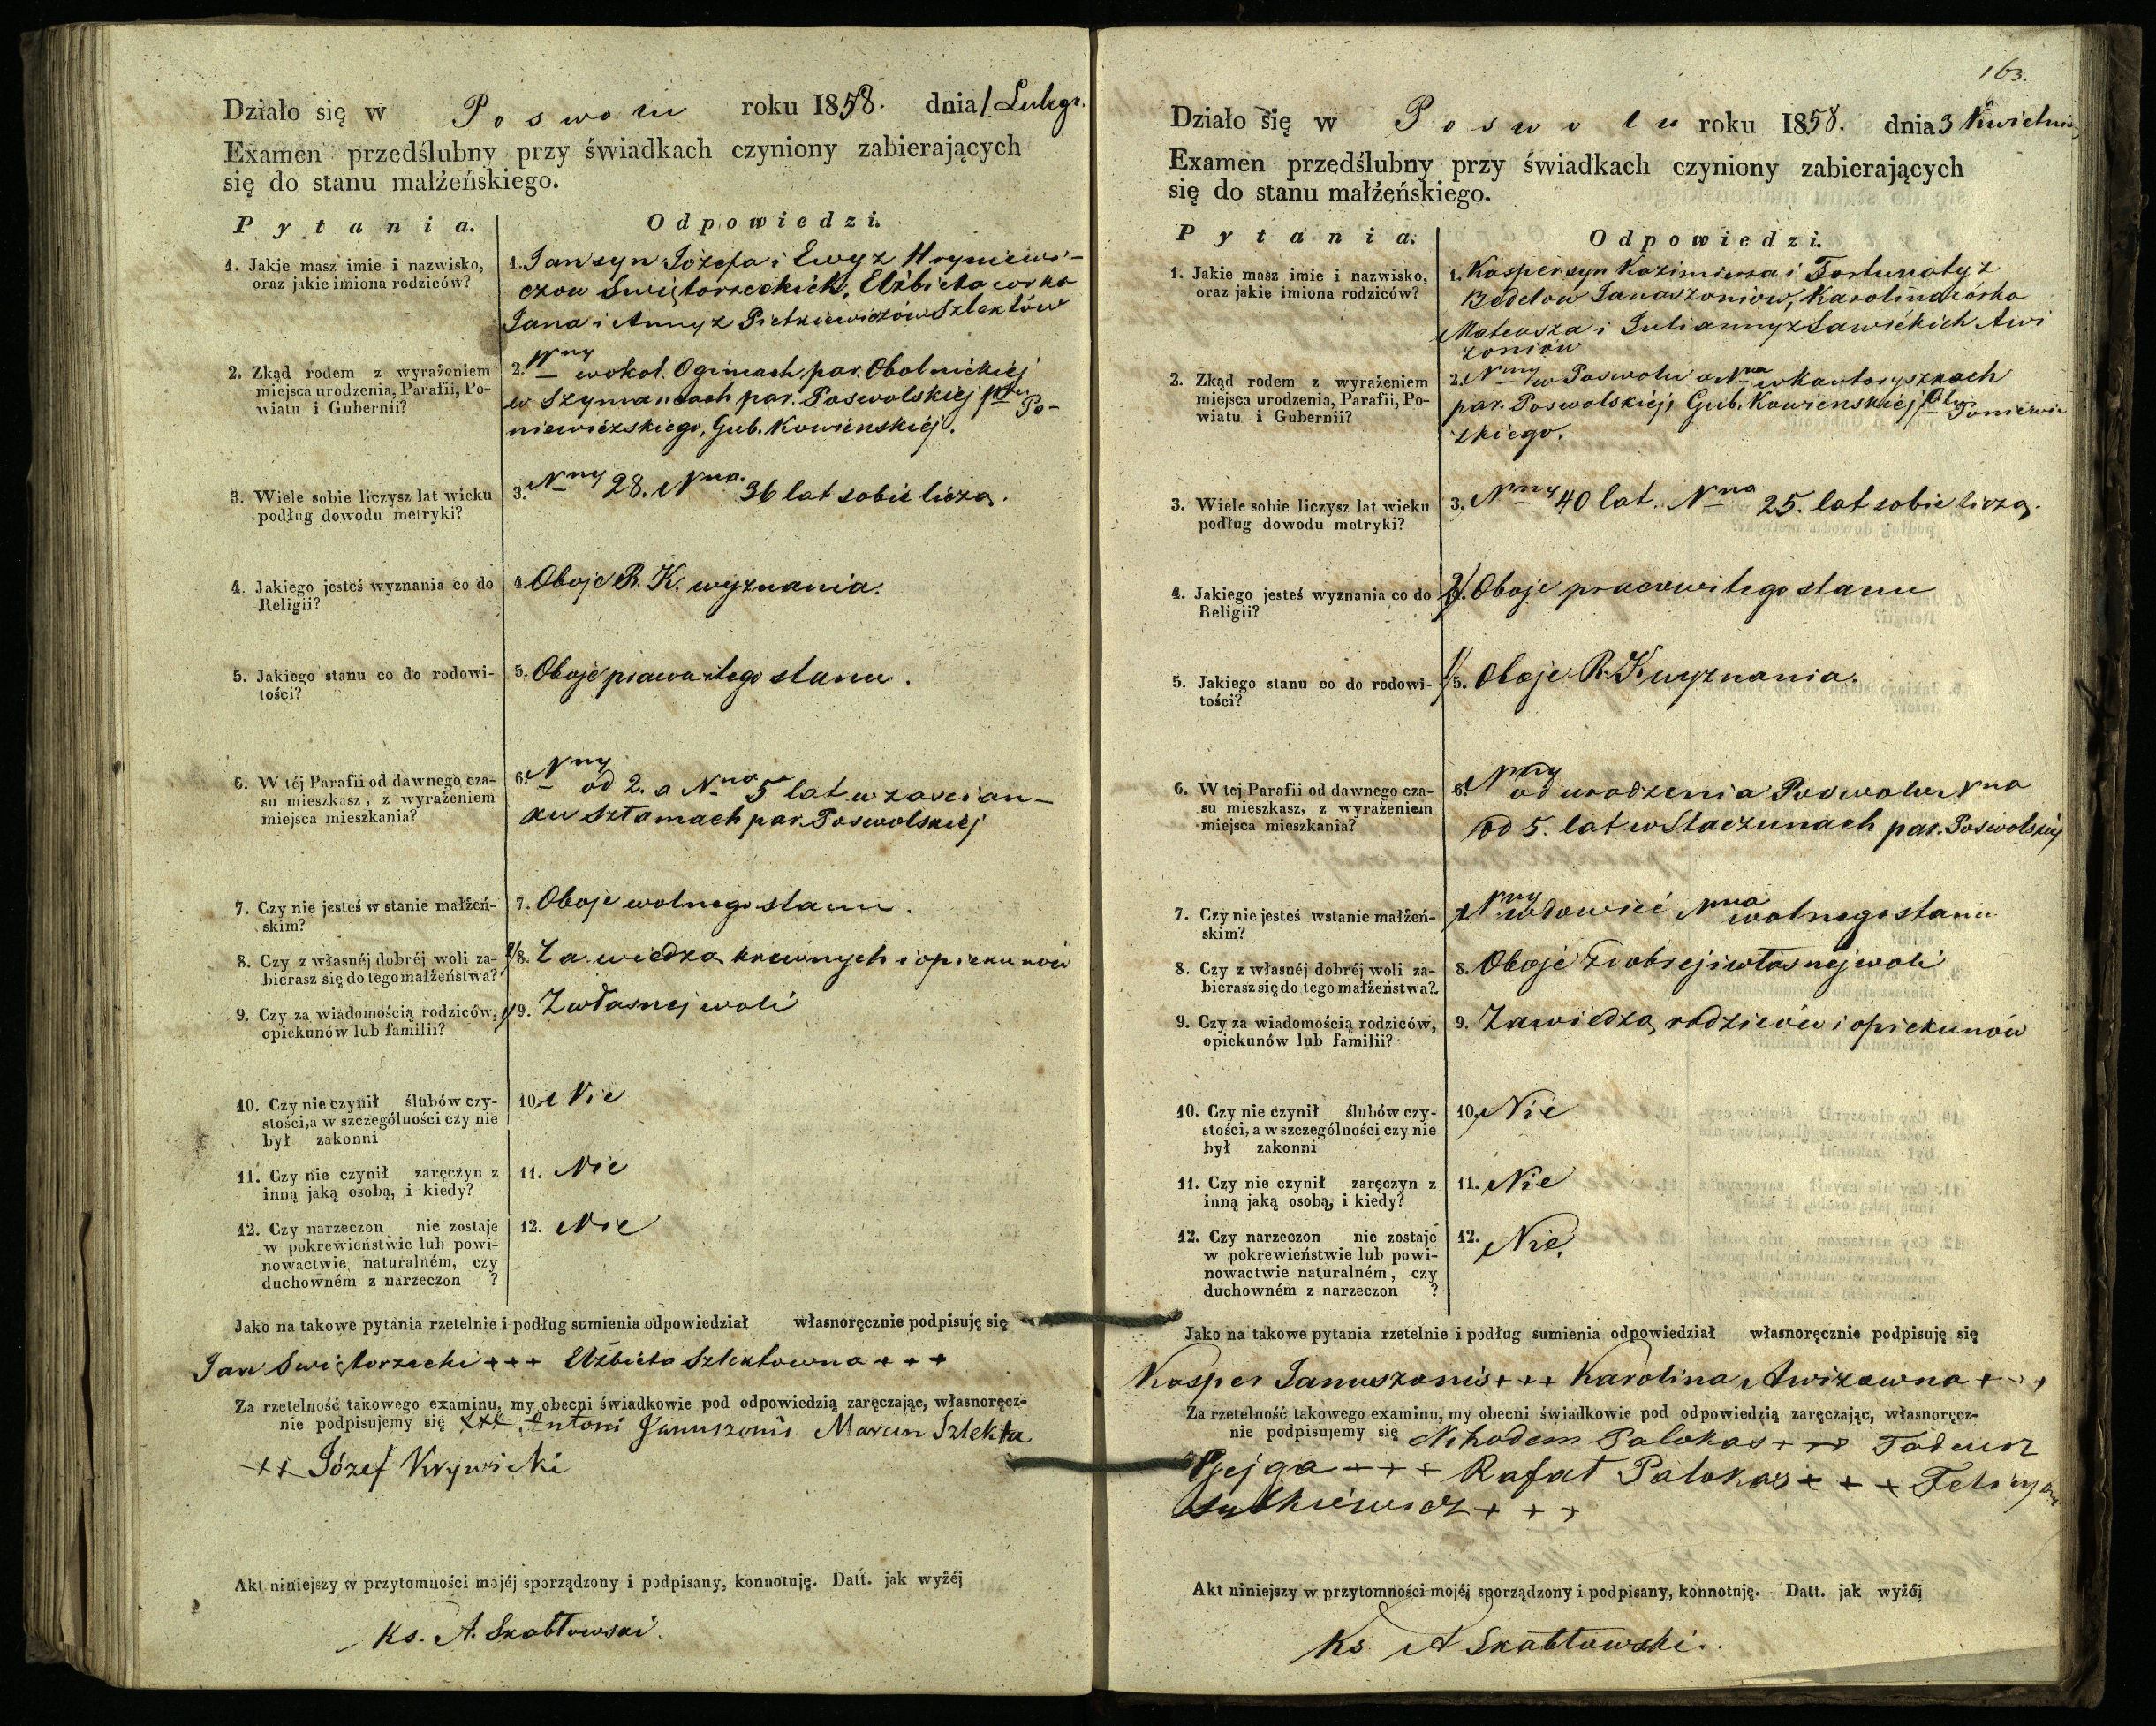 Działo się w Poswolu roku 1858. dnia 1 Lutego.
Examen przedślubny przy świadkach czyniony zabierających
się do stanu małżeńskiego.
Pytania. Odpowiedzi.
1. Jakie masz imie i nazwisko,
oraz jakie imiona rodziców?
1. Jan syn Józefa i Ewy z Hryniewi-
czow Swiętorzeckich, Elżbieta corka
Jana i Anny z Pietkiewiczów Szlektów
2. Zkąd rodem z wyrażeniem
miejsca urodzenia, Parafii, Po-
wiatu i Gubernii?
2. Nny w okol. Ogincach par. Obolnickiej
w Szymancach par. Poswolskiej ptu Po-
niewiezskiego, Gub. Kowienskiéj.
3. Wiele sobie liczysz lat wieku
podług dowodu metryki?
3. Nny 28. Nna. 36 lat sobie liczą.
4. Jakiego jesteś wyznania co do
Religii?
4. Oboje R. K. wyznania.
5. Jakiego stanu co do rodowi-
tości?
5. Oboje pracowitego stanu.
6. W téj Parafii od dawnego cza-
su mieszkasz, z wyrażeniem
miejsca mieszkania?
6. Nny od 2. a Nna 5 lat w zascian-
ku Sztamach par. Poswolskiej
7. Czy nie jesteś w stanie małżeń-
skim?
7. Oboje wolnego stanu.
8. Czy z własnéj dobréj woli za-
bierasz się do tego małżeństwa?
8. Za wiedzą krewnych i opiekunów
9. Czy za wiadomością rodziców,
opiekunów lub familii?
9. Z własnej woli
10. Czy nie czynił ślubów czy-
stości, a w szczególności czy nie
był zakonni
10. Nie
11. Czy nie czynił zaręczyn z
inną jaką osobą, i kiedy?
11. Nie
12. Czy narzeczon nie zostaje
w pokrewieństwie lub powi-
nowactwie naturalném, czy
duchowném z narzeczon ?
12. Nie
Jako na takowe pytania rzetelnie i podług sumienia odpowiedział własnoręcznie podpisuję się
Jan Swiętorzecki +++ Elżbieta Szlektowna +++
Za rzetelność takowego examinu, my obecni świadkowie pod odpowiedzią zaręczając, własnoręcz-
nie podpisujemy się +++ Antoni Januszonis Marcin Szlekta
++ Józef Krywicki
Akt niniejszy w przytomności mojéj sporządzony i podpisany, konnotuję. Datt. jak wyżéj
Ks. A. Skabłowski.
163.
Działo się w Poswolu roku 1858. dnia 3 Kwietnia
Examen przedślubny przy świadkach czyniony zabierających
się do stanu małżeńskiego.
Pytania. Odpowiedzi.
1. Jakie masz imie i nazwisko,
oraz jakie imiona rodziców?
1. Kasper syn Kazimierza i Fortunaty z
Bedelow Januszoniow, Karolina córka
Mateusza i Julianny z Sawickich Awi
zoniow
2. Zkąd rodem z wyrażeniem
miejsca urodzenia, Parafii, Po-
wiatu i Gubernii?
2. Nny w Poswolu a Nna w Kantoryszkach
par. Poswolskiej, Gub. Kowienskiej Ptu Poniewie
zkiego.
3. Wiele sobie liczysz lat wieku
podług dowodu metryki?
3. Nny 40 lat. Nna 25. lat sobie liczą.
4. Jakiego jesteś wyznania co do
Religii?
4. Oboje pracowitego stanu
5. Jakiego stanu co do rodowi-
tości?
5. Oboje R. K wyznania.
6. W tej Parafii od dawnego cza-
su mieszkasz, z wyrażeniem
miejsca mieszkania?
6. Nny od urodzenia Poswolu Nna
od 5. lat w Staczunach par. Poswolskiej
7. Czy nie jesteś wstanie małżeń-
skim?
Nny wdowiec Nna wolnego stanu
8. Czy z własnéj dobréj woli za-
bierasz się do tego małżeństwa?
8. Oboje z dobrej i własnej woli
9. Czy za wiadomością rodziców,
opiekunów lub familii?
9. Za wiedzą rodziców i opiekunów
10. Czy nie czynił ślubów czy-
stości, a w szczególności czy nie
był zakonni
10. Nie
11. Czy nie czynił zaręczyn z
inną jaką osobą, i kiedy?
11. Nie
12. Czy narzeczon nie zostaje
w pokrewieństwie lub powi-
nowactwie naturalném, czy
duchowném z narzeczon ?
12. Nie.
Jako na takowe pytania rzetelnie i podług sumienia odpowiedział własnoręcznie podpisuję się
Kasper Januszonis +++ Karolina Awizowna +++
Za rzetelność takowego examinu, my obecni świadkowie pod odpowiedzią zaręczając, własnoręcz-
nie podpisujemy się Nikodem Palokas +++ Tadeusz
Gejga +++ Rafał Palokas +++ Felicyan
Sutkiewicz +++
Akt niniejszy w przytomności mojéj sporządzony i podpisany, konnotuję. Datt. jak wyżéj
Ks A Skabłowski.